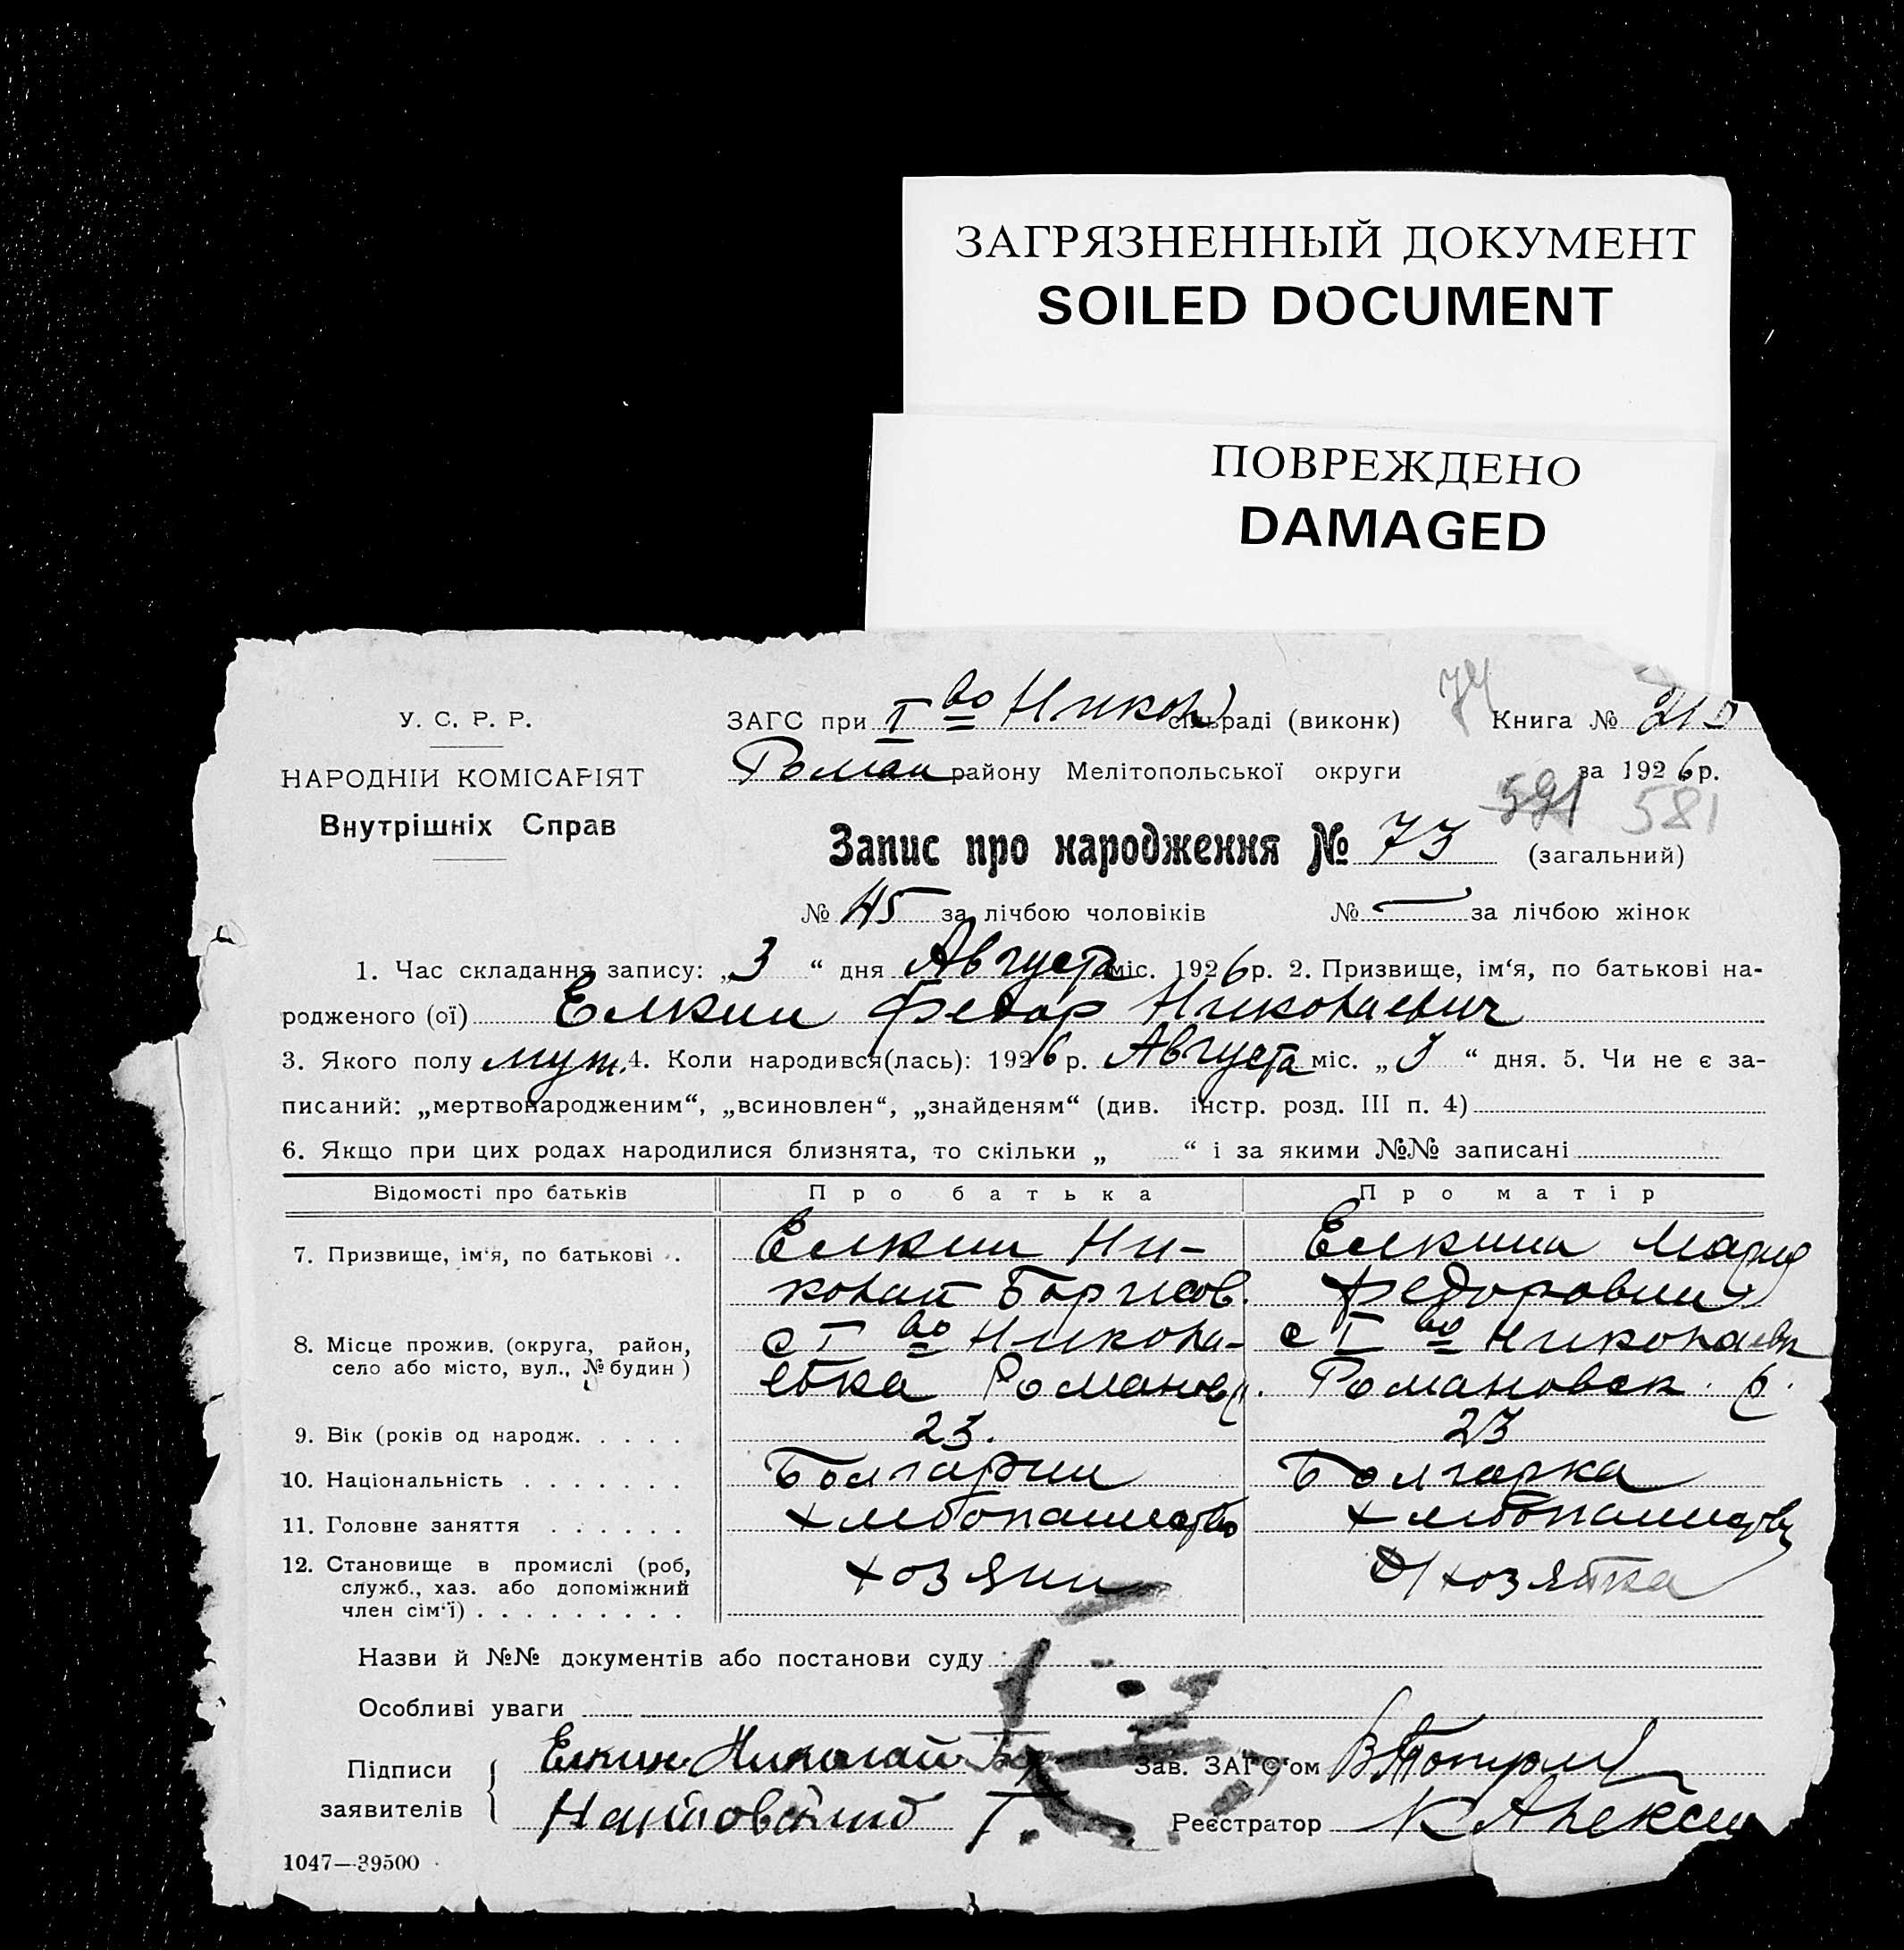 ЗАГРЯЗНЕННЫЙ ДОКУМЕНТ
SOILED DOCUMENT
ПОВРЕЖДЕНО
DAMAGED
У. С. Р. Р.
НАРОДНІЙ КОМІСАРІЯТ
Внутрішніх Справ
ЗАГС при I во Никол сільраді (виконк) 74 Книга №
Роман району Мелітопольської округи за 1926 р.
591 581
Запис про народження № 73 (загальний)
№ 45 за лічбою чоловіків № — за лічбою жінок
1. Час складання запису: „3“ дня Августа міс. 1926 р. 2. Призвище, ім‘я, по батькові на-
родженого (ої) Елкин Федор Николаевич
3. Якого полу муж. 4. Коли народився(лась): 1926 р. Августа міс. „3“ дня. 5. Чи не є за-
писаний: „мертвонародженим“, „всиновлен“, „знайденям“ (див. інстр. розд. III п. 4)
6. Якщо при цих родах народилися близнята, то скільки „ “ і за якими №№ записані
Відомості про батьків Про батька Про матір
7. Призвище, ім‘я, по батькові . . Елкин Ни- Елкина Мария
колай Борисов. Федоровна
8. Місце прожив. (округа, район, с I во Никола- с I во Николаевк
село або місто, вул., № будин) евка Романов р. Романовск. р.
9. Вік (років од народж. . . . . 23. 23
10. Національність . . . . . . . Болгарин Болгарка
11. Головне заняття . . . . . . Хлебопашество Хлебопашество
12. Становище в промислі (роб, хозяин д/хозяйка
служб., хаз. або допоміжний
член сім‘ї) . . . . . . . . .
Назви й №№ документів або постанови суду
Особливі уваги
Підписи Елкин Николай Зав. ЗАГС‘ом
заявителів Реєстратор К Алексе
1047—39500